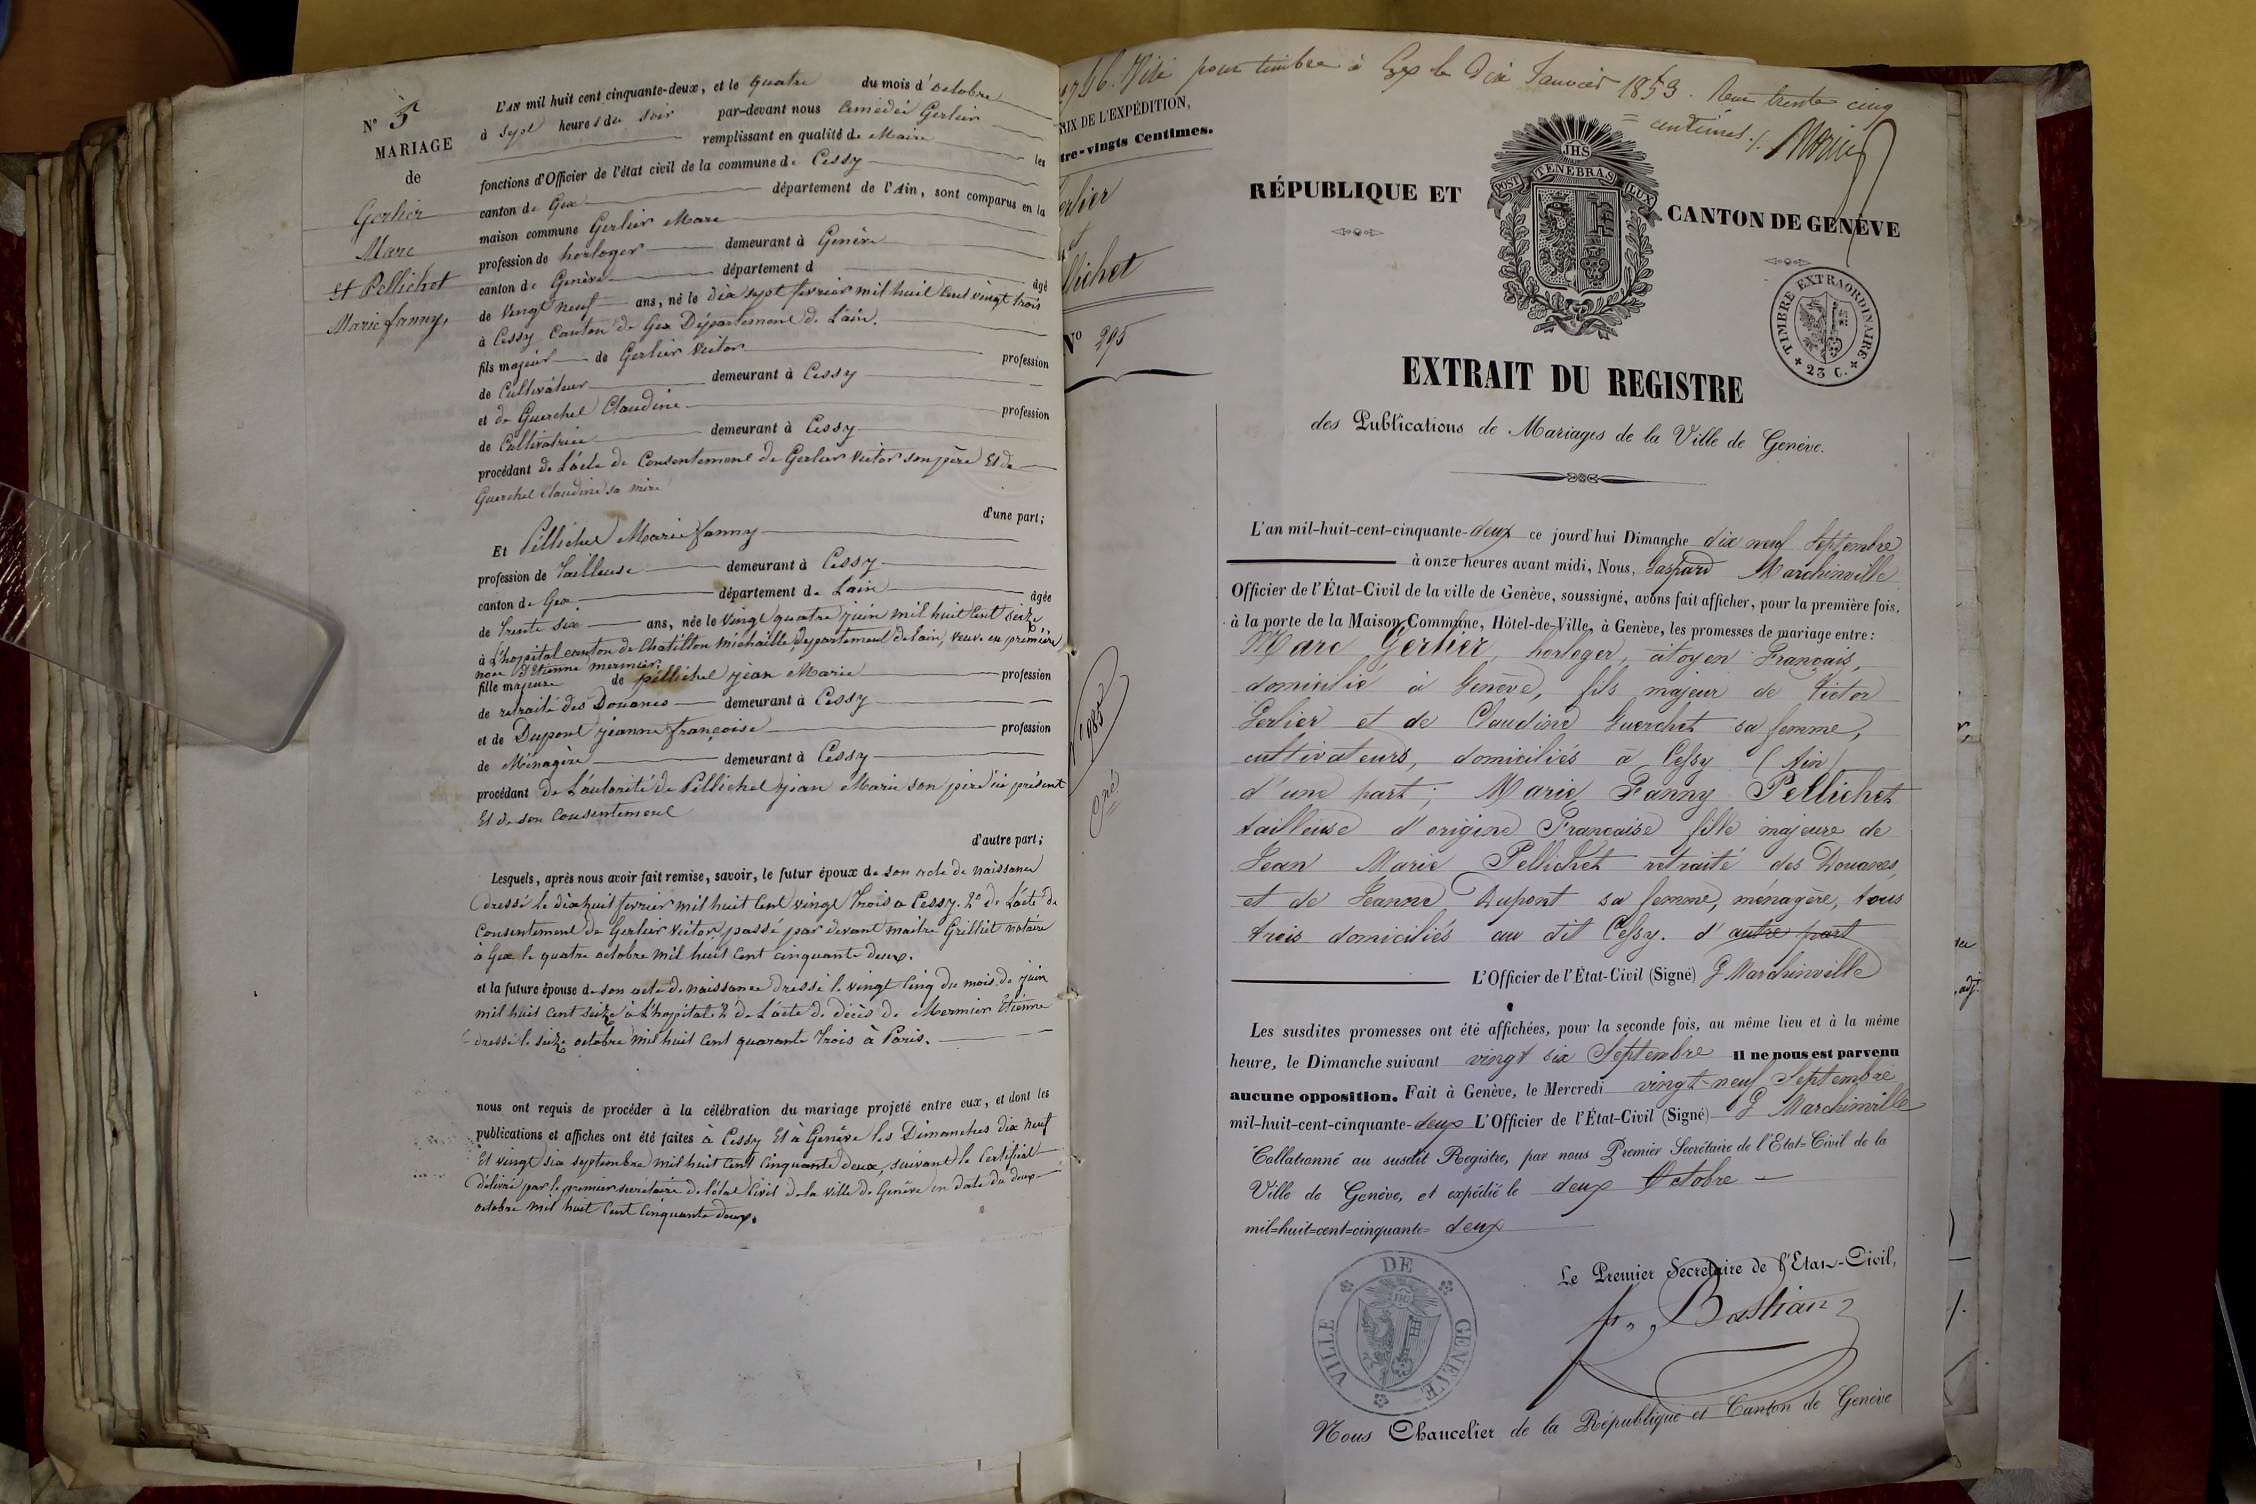 N° 5
MARIAGE
de
Gerlier
Marc
et Pellichet
Marie fanny,
L'AN mil huit cent cinquante-deux, et le quatre du mois d'octobre
à sept heures du soir par-devant nous Amédée Gerlier
remplissant en qualité de Maire les
fonctions d'Officier de l'état civil de la commune de Cessy
canton de Gex département de l'Ain, sont comparus en la
maison commune Gerlier Marc
profession de horloger demeurant à Genève
canton de Genève département d âgé
de vingt neuf ans, né le dix sept fevrier mil huit cent vingt trois
à Cessy Canton de Gex Département de L'ain.
fils majeur de Gerlier Victor profession
de Cultivateur demeurant à Cessy
et de Guerchet Claudine profession
de Cultivatrice demeurant à Cessy
procédant de L'acte de Consentement de Gerlier Victor son père Et de
Guerchet Claudine sa mère
d'une part;
Et Pellichet Marie fanny
profession de Tailleuse demeurant à Cessy
canton de Gex département de L'ain âgée
de Trente Six ans, née le vingt quatre juin mil huit Cent Seize
à L'hopital canton de Chatillon michaille, Departement de lain, veuve en première
noce d'Etienne mermier,
fille majeure de pellichet jean Marie profession
de retraité des Douanes demeurant à Cessy
et de Dupont jeanne françoise profession
de Ménagère demeurant à Cessy
procédant de L'autorité de Pellichet jean Marie son père ici présent
Et de son Consentement
d'autre part;
Lesquels, après nous avoir fait remise, savoir, le futur époux de son acte de naissance
dressé le dix huit fevrier mil huit Cent vingt Trois a Cessy. 2° de L'acte de
Consentement de Gerlier Victor passé par devant maitre Grilliet notaire
à Gex le quatre octobre mil huit Cent cinquante deux.
et la future épouse de son acte de naissance dressé le vingt Cinq du mois de juin
mil huit cent seize à L'hopital. 2° de L'acte de décès de Mermier Etienne
dressé le seize octobre mil huit Cent quarante Trois à Paris.
nous ont requis de procéder à la célébration du mariage projeté entre eux, et dont les
publications et affiches ont été faites à Cessy Et à Genève les Dimanches dix neuf
Et vingt six septembre mil huit Cent Cinquante deux, suivant le Certificat
délivré par le premier secrétaire de l'état Civil de la ville de Genève en date du deux
octobre mil huit Cent Cinquante deux.
Visé pour timbre à Gex le Dix Janvier 1853. Reçu trente cinq
centimes.
RIX DE L'EXPÉDITION,
tre-vingts Centimes.
erlier
et
llichet
N° 295
RÉPUBLIQUE ET CANTON DE GENÈVE
JHS
POST TENEBRAS LUX
TIMBRE EXTRAORDINAIRE
23 C.
EXTRAIT DU REGISTRE
des Publications de Mariages de la Ville de Genève.
L'an mil-huit-cent-cinquante-deux ce jourd'hui Dimanche dix neuf Septembre
à onze heures avant midi, Nous, Gaspard Marchinville
Officier de l'État-Civil de la ville de Genève, soussigné, avons fait afficher, pour la première fois,
à la porte de la Maison Commune, Hôtel-de-Ville, à Genève, les promesses de mariage entre:
Marc Gerlier, horloger, citoyen Français,
domicilié à Genève, fils majeur de Victor
Gerlier et de Claudine Guerchet sa femme,
cultivateurs, domiciliés à Cessy (Ain)
d'une part; Marie Fanny Pellichet
tailleuse d'origine Française fille majeure de
Jean Marie Pellichet retraité des Douanes,
et de Jeanne Dupont sa femme, ménagère, tous
trois domiciliés au dit Cessy. d'autre part
L'Officier de l'État-Civil (Signé) G Marchinville
Les susdites promesses ont été affichées, pour la seconde fois, au même lieu et à la même
heure, le Dimanche suivant vingt six Septembre Il ne nous est parvenu
aucune opposition. Fait à Genève, le Mercredi vingt-neuf Septembre
mil-huit-cent-cinquante-deux L'Officier de l'État-Civil (Signé) G Marchinville
Collationné au susdit Registre, par nous Premier Secrétaire de l'Etat=Civil de la
Ville de Genève, et expédié le deux Octobre
mil=huit=cent=cinquante= deux
Le Premier Secrétaire de l'Etat-Civil,
Bastian
VILLE DE GENEVE
Nous Chancelier de la République et Canton de Genève